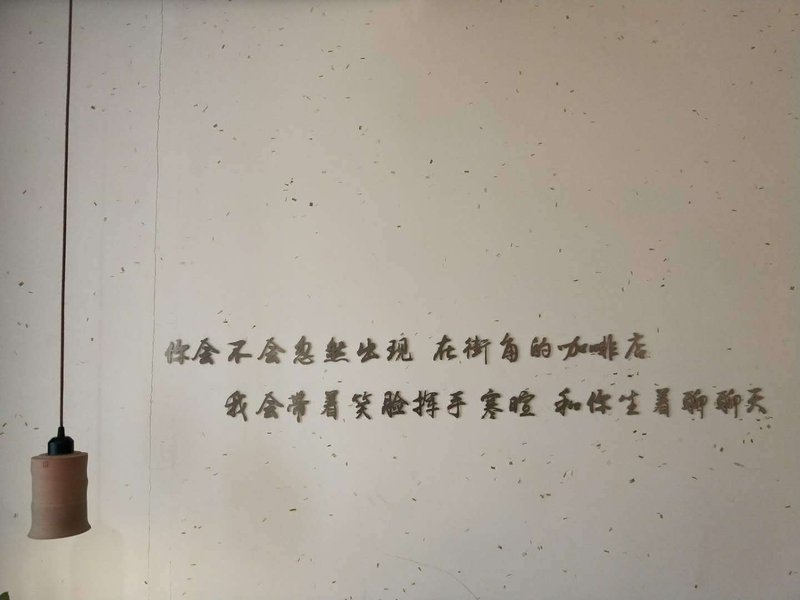 你会不会忽然出现 在街角的咖啡店
我会带着笑脸挥手寒暄 和你坐着聊聊天